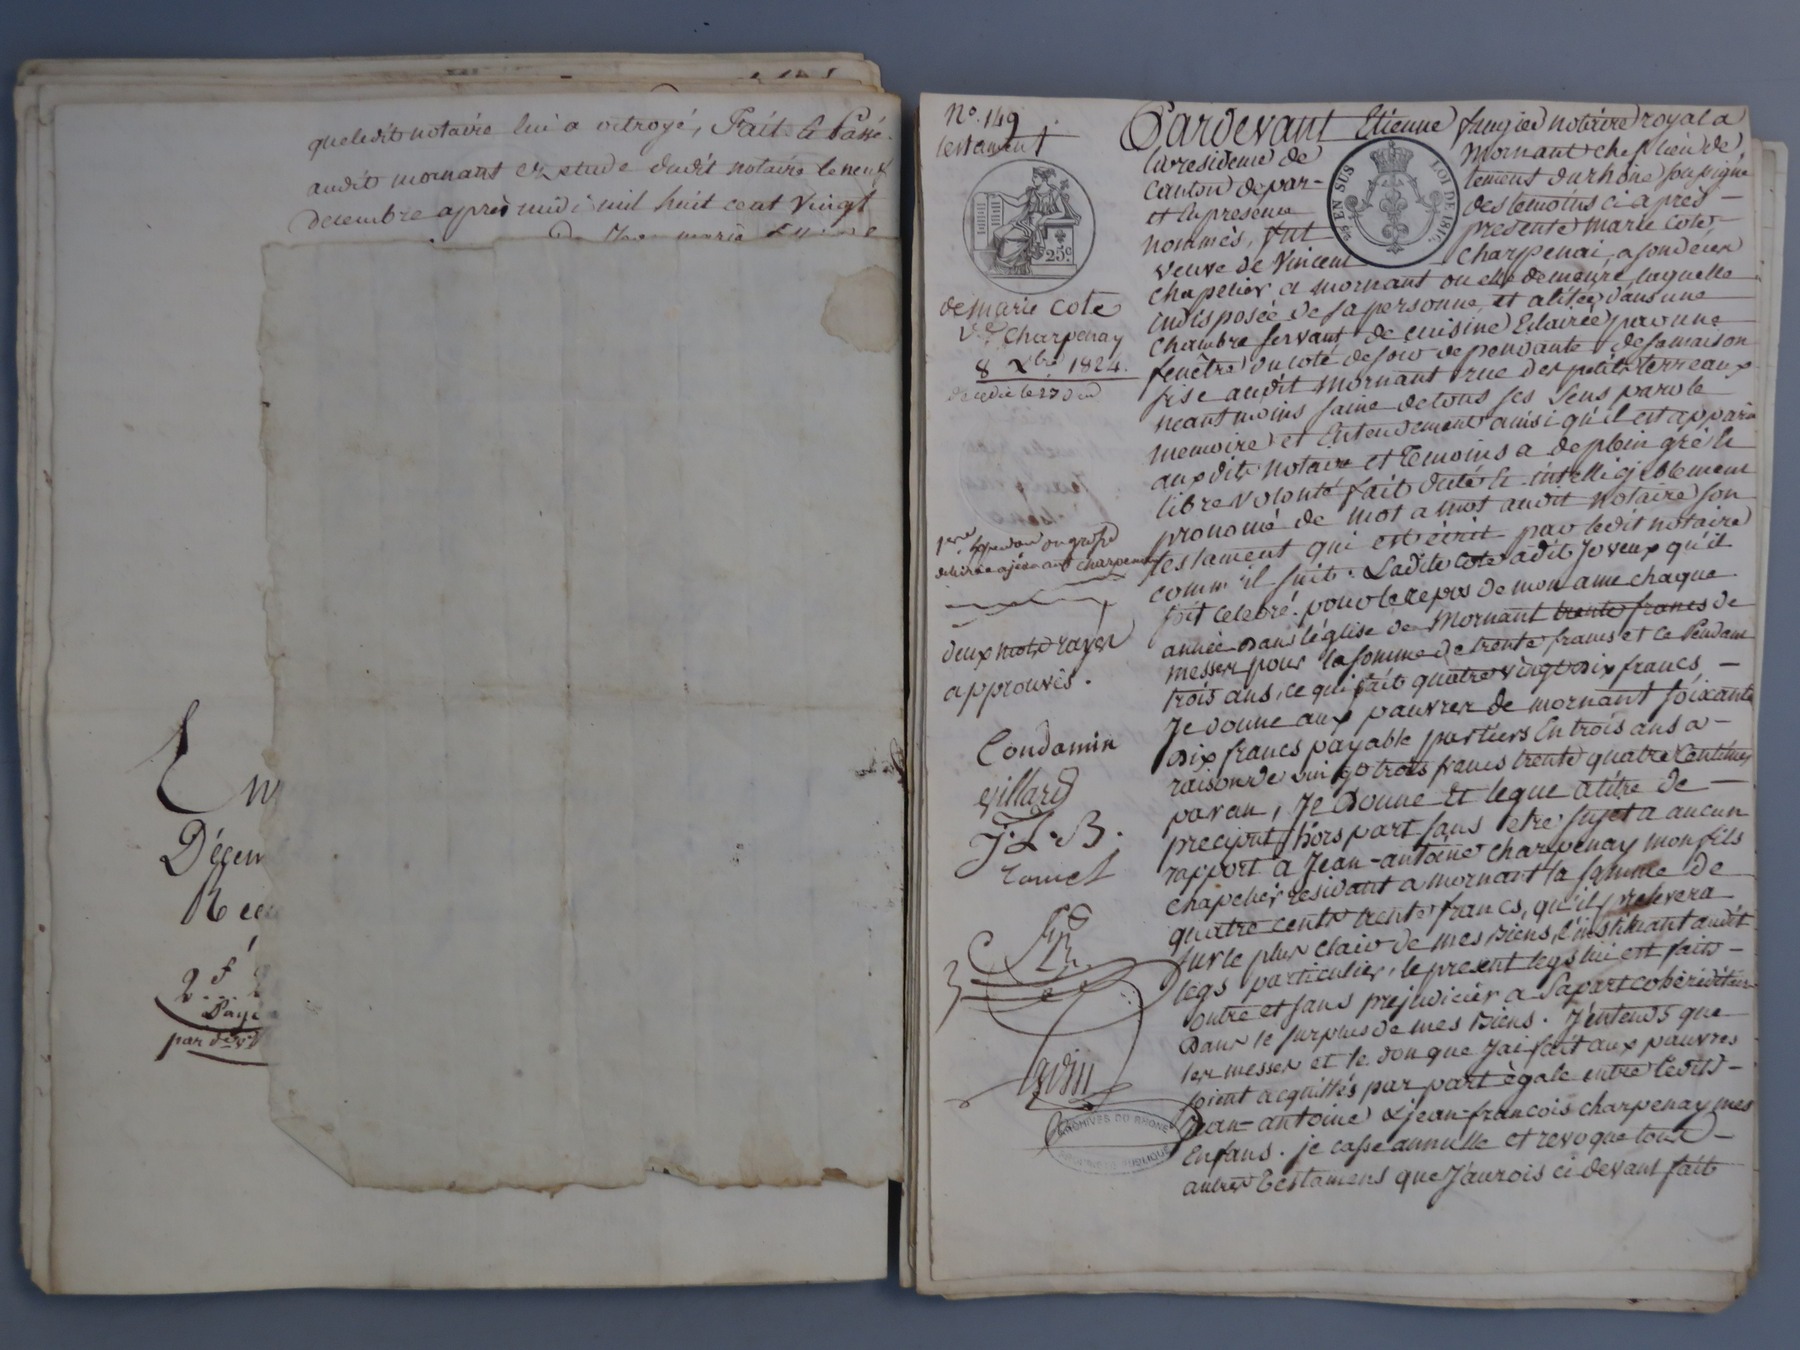 que ledit notaire lui a octroyé, Fait & Passé
audit mornant en etude dudit notaire le neuf
decembre après midi mil huit cent vingt
En
Décem
Rec
2 f
Payé
par
N.o 149
testament
25c
EN SUS
LOI DE 1816
de marie cote
V.e Charpenay
8 Xbre 1824.
decedée le
1ere Expedition en grosse
delivrée a jean ant charpenay
deux mots rayés
approuvés.
Condamin
Villard
J. L. B.
ARCHIVES DU RHONE
Pardevant Etienne faugier notaire royal a
la residence de Mornant chef lieu de
canton depar- tement du rhone soussigné
et En presence des temoins ci après -
nommés, fut presente marie cote
veuve de Vincent Charpenai, a son decès
chapelier a mornant ou elle demeure, laquelle
indisposée de sa personne, et alitée dans une
chambre servant de cuisine Eclairée par une
fenêtre du coté de soir dependante de sa maison
sise audit Mornant rue des petits terreaux
neantmoins saine de tous ses Sens parole
memoire et Entendement ainsi qu'il est apparu
auxdits notaire et temoins a de plein gré &
libre volonté fait dicté & intelligiblement
prononcé de mot a mot audit notaire son
testament qui est écrit par ledit notaire
comm'il suit. Ladite Cote a dit Je veux qu'il
soit celebré pour le repos de mon ame chaque
année dans l'église de Mornant trente francs de
messes pour la somme de trente francs et ce Pendant
trois ans, ce qui fait quatre vingt dix francs -
Je donne aux pauvres de mornant soixante
dix francs payable par tiers En trois ans a -
raison de vingt trois francs trente quatre Centimes
par an, Je Donne et legue a titre de -
preciput hors part sans etre sujet a aucun
rapport a Jean-antoine charpenay mon fils
chapelier residant a mornant la somme de
quatre cents trente francs, qu'il prelevera
sur le plus clair de mes Biens, l'instituant audit
legs particulier, le present legs lui est fait -
outre et sans prejudicier a Sa part cohereditaire
Dans le surplus de mes Biens. J'entends que
les messes et le don que J'ai fait aux pauvres
soient acquittés par part ègale entre lesdits -
jean-antoine & jean-francois charpenay mes
Enfans. je casse annulle et revoque tous -
autres testamens que J'aurois ci devant fait